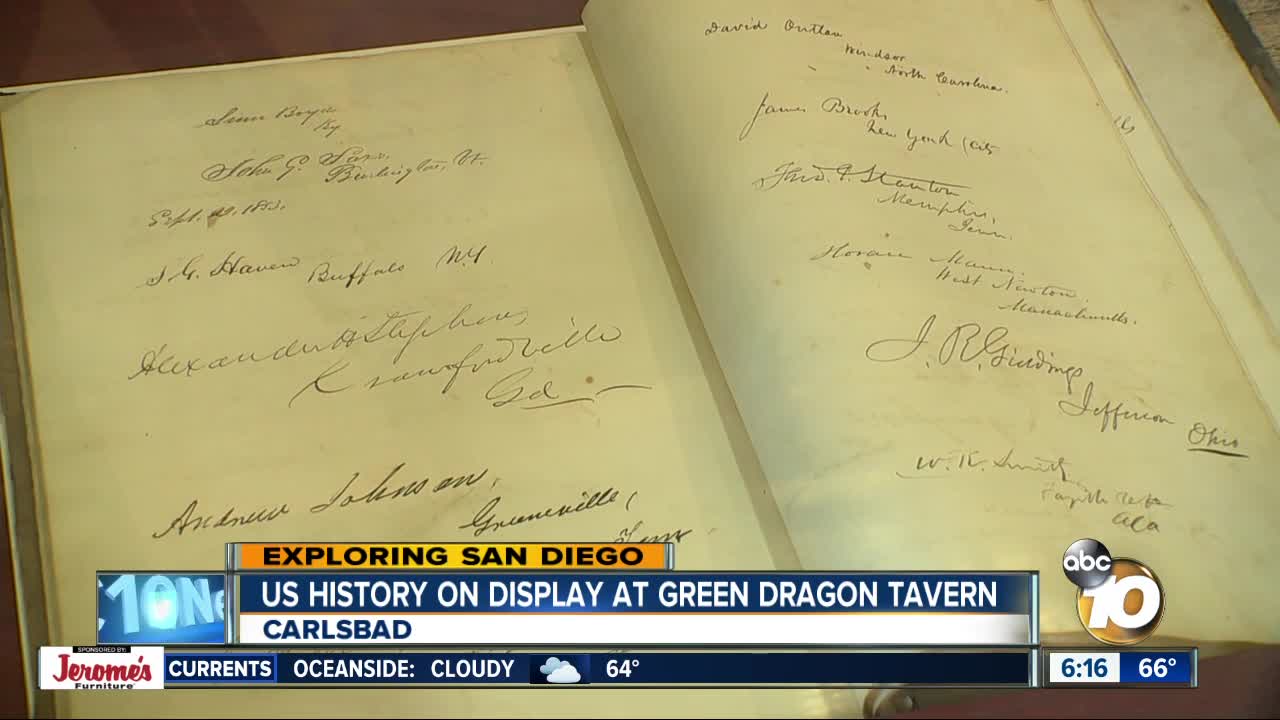 Boyd
Ky
John G. Saxe.
Burlington, Vt.
Sept. 1853.
S. G. Haven Buffalo N.Y.
Alexander H Stephens
Krawfordville
Ga
Andrew Johnson,
Greeneville,
Tenn
David Outlaw
Windsor
North Carolina.
James Brooks
New York City
F. P. Stanton
Memphis,
Tenn.
Horace Mann.
West Newton.
Massachusetts.
J. R. Giddings
Jefferson Ohio
W. R. Smith
Ala
EXPLORING SAN DIEGO
10Ne
US HISTORY ON DISPLAY AT GREEN DRAGON TAVERN
CARLSBAD
abc
10
SPONSORED BY:
Jerome's
Furniture
CURRENTS OCEANSIDE: CLOUDY 64° 6:16 66°